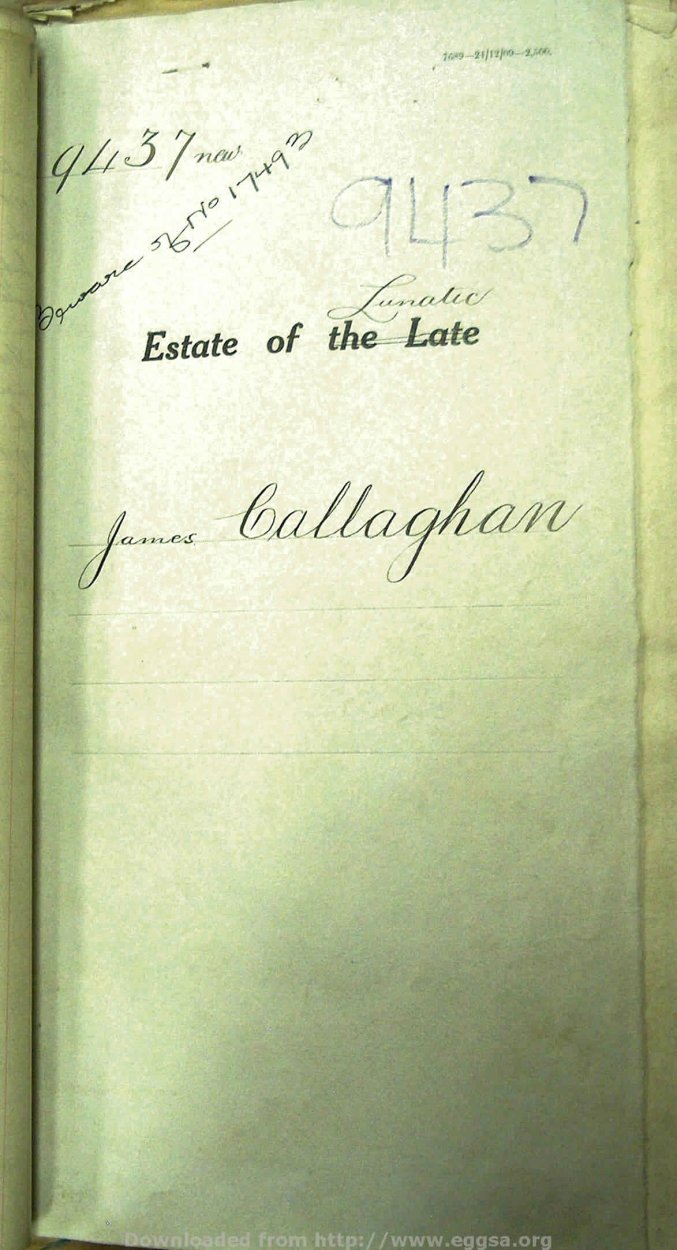 7689—21/12/09—2,500.
9437 new
Beware of No 17493
9437
Lunatic
Estate of the Late
James Callaghan
Downloaded from http://www.eggsa.org